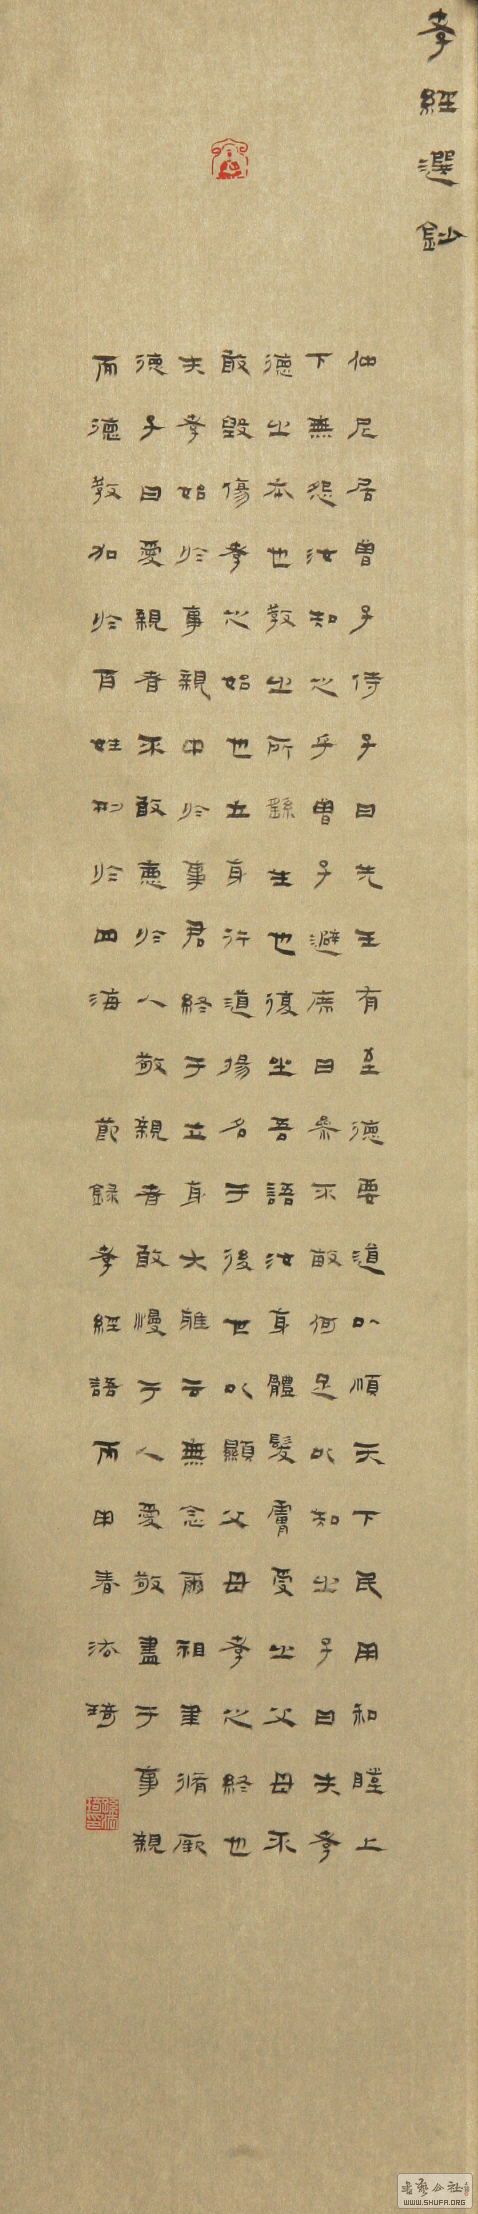 孝經選鈔
仲尼居曾子侍子曰先王有至德要道以順天下民用和睦上
下無怨汝知之乎曾子避席曰參不敏何足以知之子曰夫孝
德之本也教之所繇生也復坐吾語汝身體髮膚受之父母不
敢毀傷孝之始也立身行道揚名于後世以顯父母孝之終也
夫孝始於事親中於事君終于立身大雅云無念爾祖聿脩厥
德子曰愛親者不敢惡於人敬親者敢慢于人愛敬盡于事親
而德教加於百姓刑於四海 節錄孝經語丙申春法琦
書藝公社
WWW.SHUFA.ORG